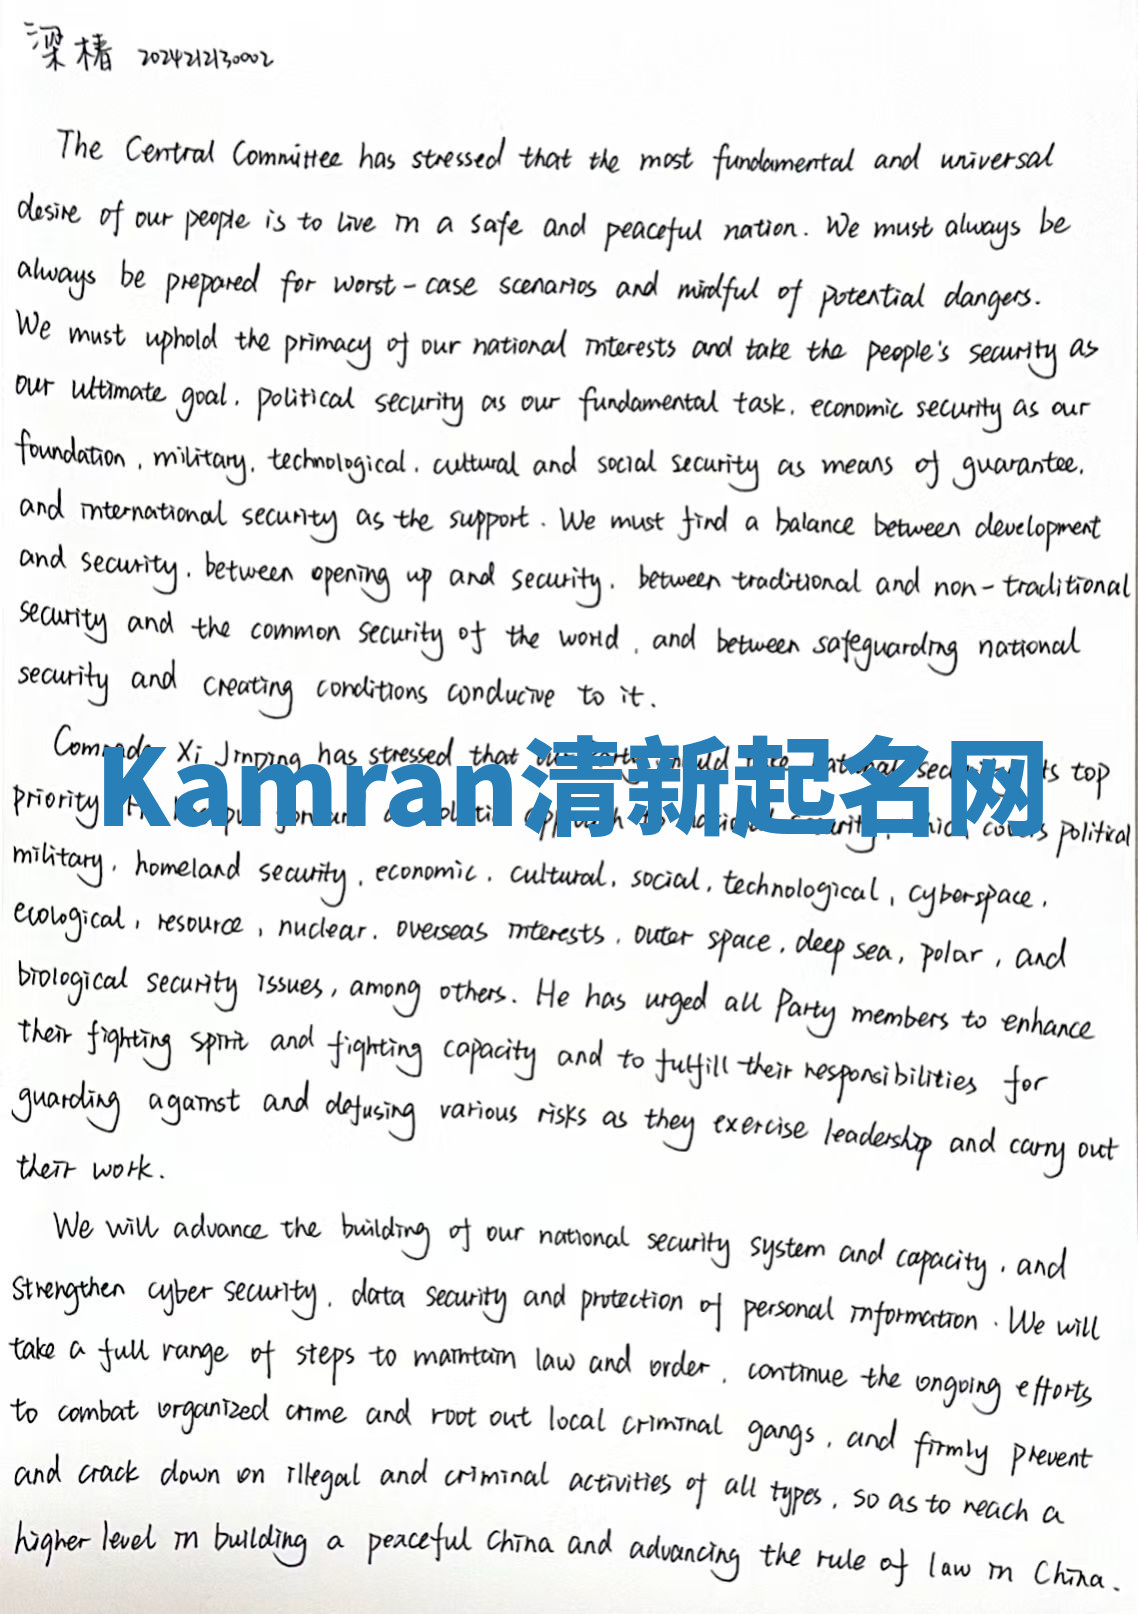 梁椿 2024212130002
The Central Committee has stressed that the most fundamental and universal
desire of our people is to live in a safe and peaceful nation. We must always be
always be prepared for worst-case scenarios and mindful of potential dangers.
We must uphold the primacy of our national interests and take the people's security as
our ultimate goal, political security as our fundamental task, economic security as our
foundation, military, technological, cultural and social security as means of guarantee,
and international security as the support. We must find a balance between development
and security, between opening up and security, between traditional and non-traditional
security and the common security of the world, and between safeguarding national
security and creating conditions conducive to it.
Comrade Xi Jinping has stressed that should security its top
priority covers political
Kamran清新起名网
military, homeland security, economic, cultural, social, technological, cyberspace,
ecological, resource, nuclear, overseas interests, outer space, deep sea, polar, and
biological security issues, among others. He has urged all Party members to enhance
their fighting spirit and fighting capacity and to fulfill their responsibilities for
guarding against and defusing various risks as they exercise leadership and carry out
their work.
We will advance the building of our national security system and capacity, and
strengthen cyber security, data security and protection of personal information. We will
take a full range of steps to maintain law and order, continue the ongoing efforts
to combat organized crime and root out local criminal gangs, and firmly prevent
and crack down on illegal and criminal activities of all types, so as to reach a
higher level in building a peaceful China and advancing the rule of law in China.